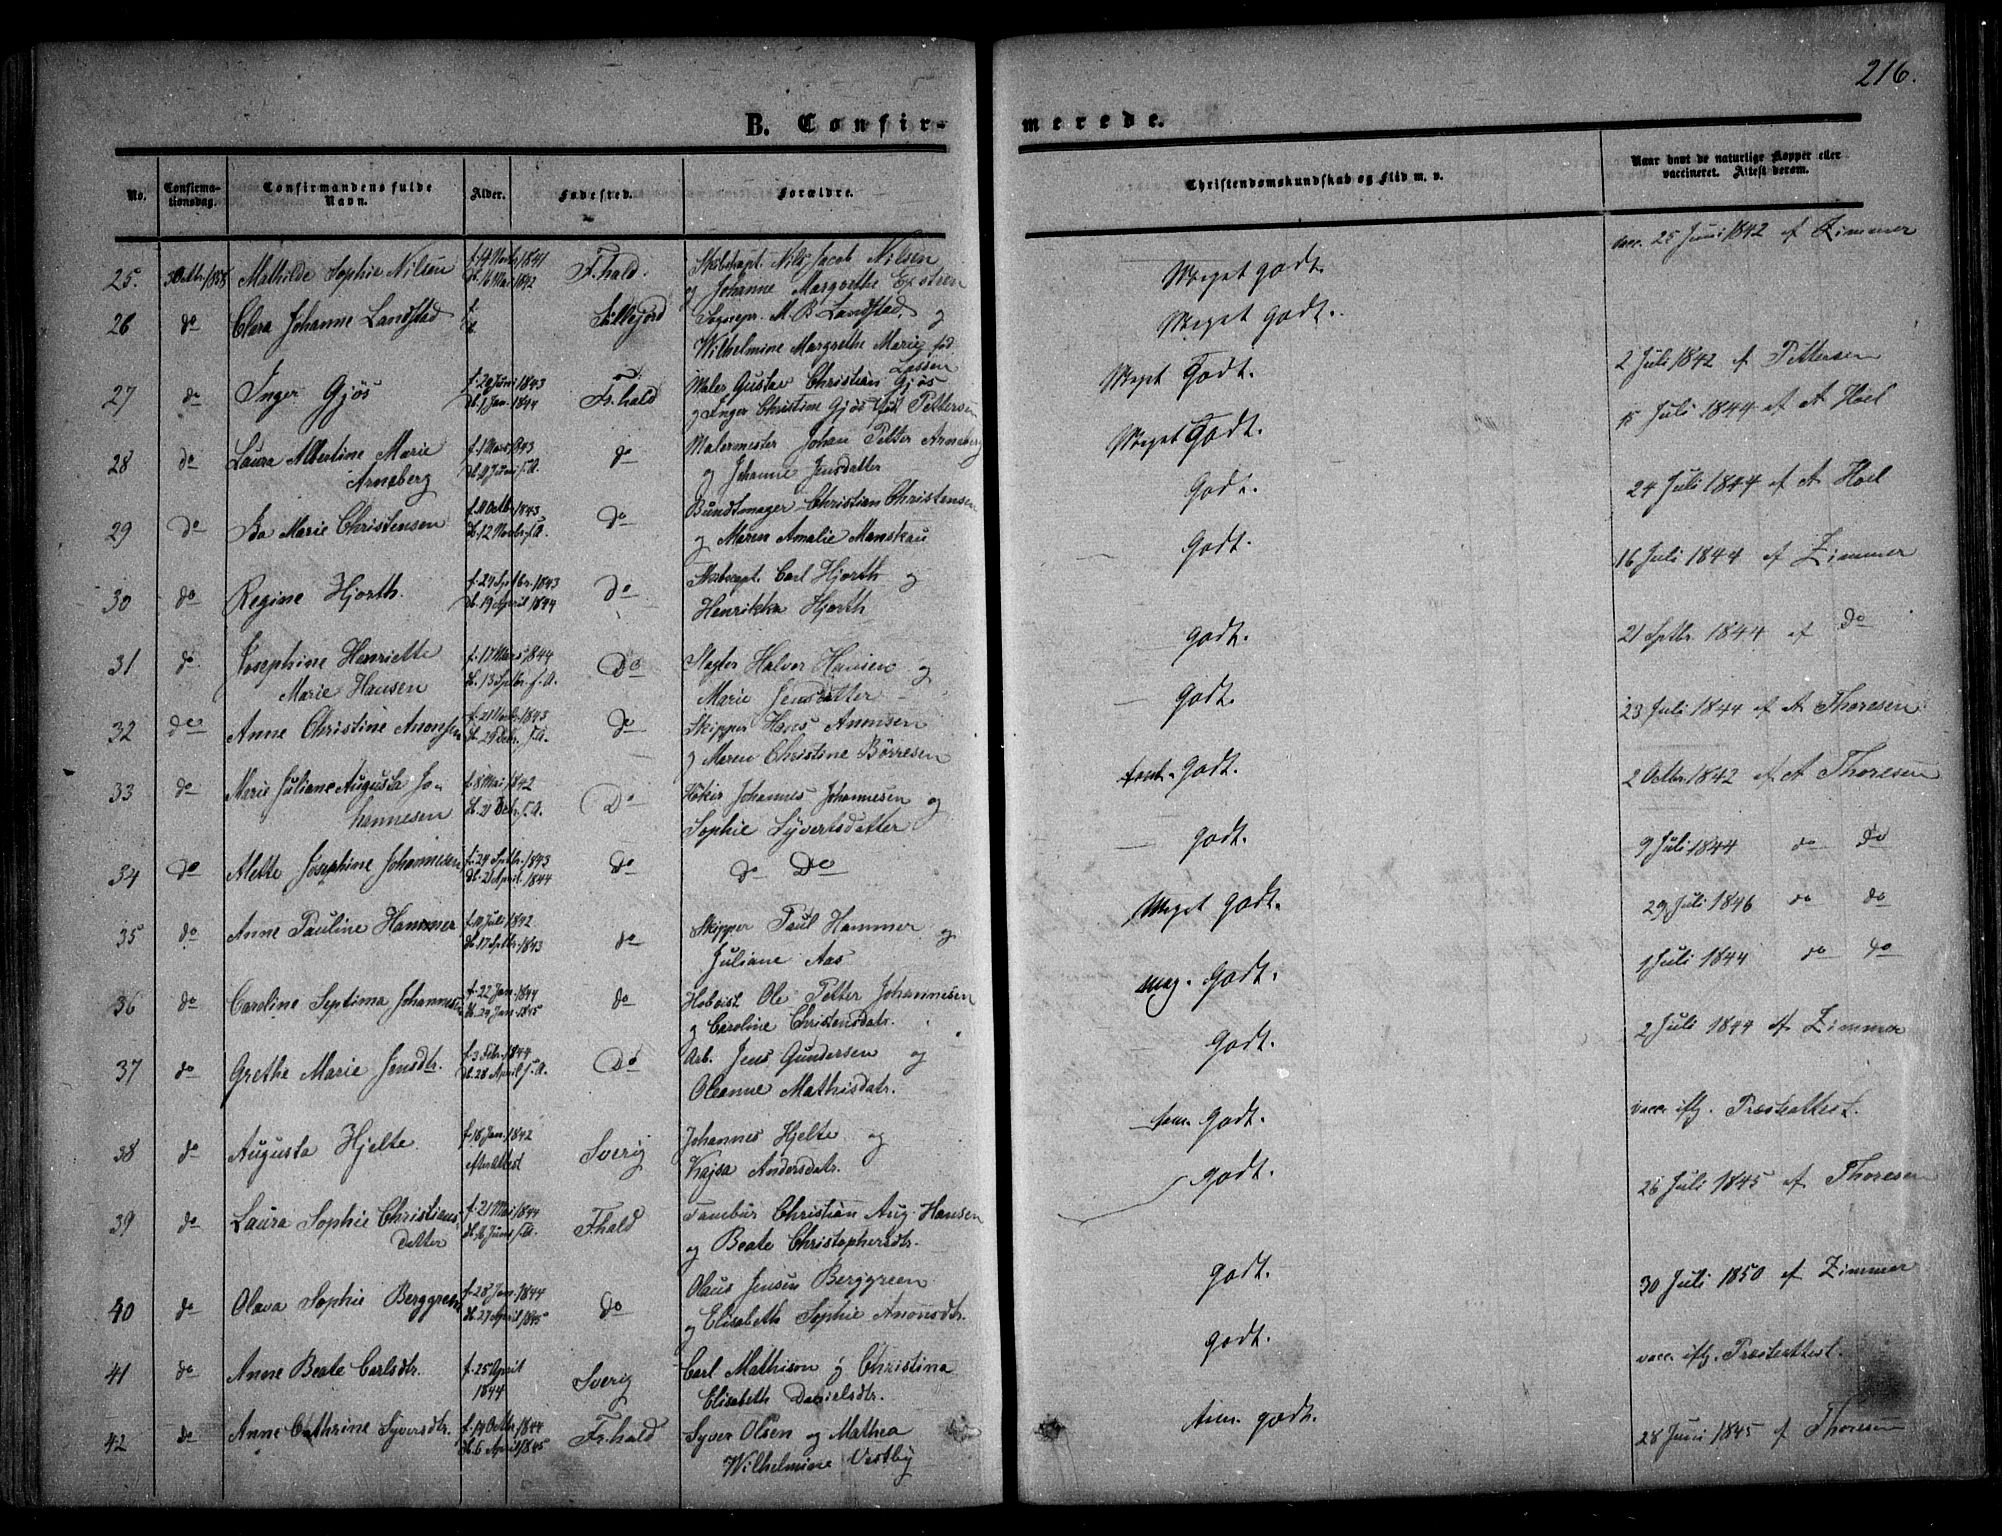 216.
B. Confir-
merede.
No.
Confirma-
tionsdag.
Confirmandens fulde
Navn.
Alder.
Fødested.
Forældre.
Christendomskundskab og Flid m. v.
Naar havt de naturlige Kopper eller
vaccineret. Attest derom.
25. Mathilde Sophie Nilsen f. 14 1841 F.hald. Skibskapt. Nils Jacob Nilsen
d. 16 Mai 1842 og Johanne Margrethe
Meget godt. vacc. 25 Juni 1842 af Zimmer
26 do Clara Johanne Landstad f. Sillejord Sognepr. M. B. Landstad og
d. Wilhelmine Margrethe Marie fød
Lassen
Meget Godt.
27 do Inger Gjøs f. 20 Juni 1843 Fr.hald Maler Gustav Christian Gjøs
d. 1 Jan. 1844 og Inger Christine Gjøs fød Pettersen
Meget Godt. 2 Juli 1842 af Pettersen
28 do Laura Albertine Marie f. 1 Mars 1843 do Malermester Johan Petter Arneberg
Arneberg d. 11 Juni s. A. og Johanne Jensdatter
Meget Godt. 15 Juli 1844 af A Hoel
29 do Marie Christensen f. 11 Octbr. 1843 do Bundtmager Christian Christensen
d. 12 Novbr. s. A. og Maren Amalie Manskau
Godt. 24 Juli 1844 af A Hoel
30 do Regine Hjorth. f. 24 Septbr. 1843 do Skibscapt. Carl Hjorth og
d. 19 April 1844 Henrikka Hjorth
Godt. 16 Juli 1844 af Zimmer
31 do Josephine Henriette f. 17 Mars 1844 Do Slagter Halvor Hansen og
Marie Hansen d. 13 Septbr. s. A. Marie Jensdatter
Godt. 21 Septbr. 1844 af do
32 do Anne Christine Anonsen f. 21 Novbr. 1843 do Skipper Hans Anonsen
d. 29 Debr. s. A. og Maren Christine Børresen
Godt. 23 Juli 1844 af A Thoresen
33 do Marie Juliane Augusta Jo- f. 8 Mai 1842 Do Høker Johannes Johannesen og
hannesen d. 21 Debr. s. A. Sophie Syvertsdatter
Godt. 2 Octbr. 1842 af A Thoresen
34 do Alette Josephine Johannesen f. 24 Septbr. 1843 do do Do
d. 21 April. 1844
Godt. 9 Juli 1844 do do
35 do Anne Pauline Hammer f. 11 Juli 1842 do Skipper Paul Hammer og
d. 17 Septbr. 1843 Juliane Aas
Meget godt. 29 Juli 1846 do do
36 do Caroline Septima Johannesen f. 22 Jan. 1844 do Hoboist Ole Petter Johannesen
d. 29 Jan. 1845 og Caroline Christensdatr.
meg. Godt. 1 Juli 1844 do do
37 do Grethe Marie Jensdtr. f. 3 Febr. 1844 Do Arb. Jens Gundersen og
d. 28 April s. A. Oleanne Mathisdatr.
Godt. 2 Juli 1844 af Zimmer
38 do Augusta Hjelte f. 18 Jan. 1842 Sverig Johannes Hjelte og
efter Attest Kajsa Andersdatr.
Godt. vacc. eftr. Præsteattest.
39 do Laura Sophie Christians f. 21 Mai 1844 F.hald Tambur Christian Aug. Hansen
datter d. 16 Juni s. A. og Beate Christophersdtr.
Godt. 26 Juli 1845 af Thoresen
40 do Olava Sophie Berggreen f. 28 Jan. 1844 do Olaus Jensen Berggreen
d. 27 April 1845 og Elisabeth Sophie Anonsdtr.
godt. 30 Juli 1850 af Zimmer
41 do Anne Beate Carlsdtr. f. 25 April Sverig Carl Mathison og Christina
1844 Elisabeth Danielsdtr.
godt. vacc. eftr. Præsteattest.
42 do Anne Cathrine Syversdtr. f. 14 Octbr. 1844 Fr.hald Syver Olsen og Mathea
d. 6 April 1845 Wilhelmine Vestby
tem. godt. 28 Juni 1845 af Thoresen